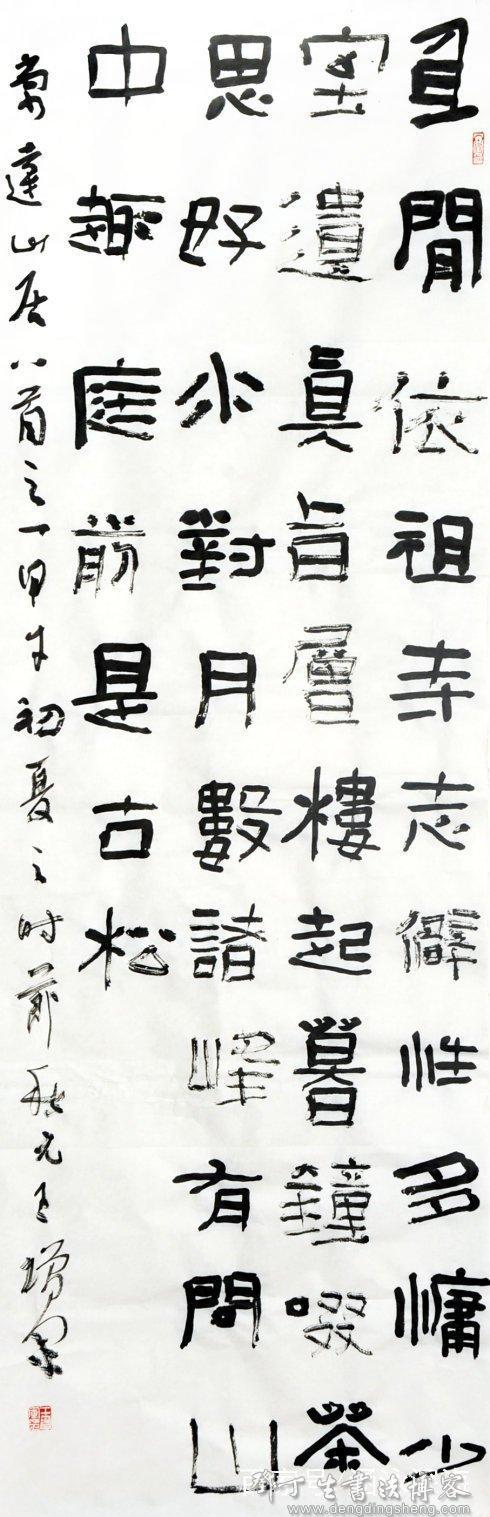 身閒依祖寺志僻性多慵少
室遺眞旨層樓起暮鐘啜茶
思好水對月數諸峰有問山
中趣庭前是古松
常達山居八首之一甲午初夏之时節
邓丁生书法博客
www.dengdingsheng.com